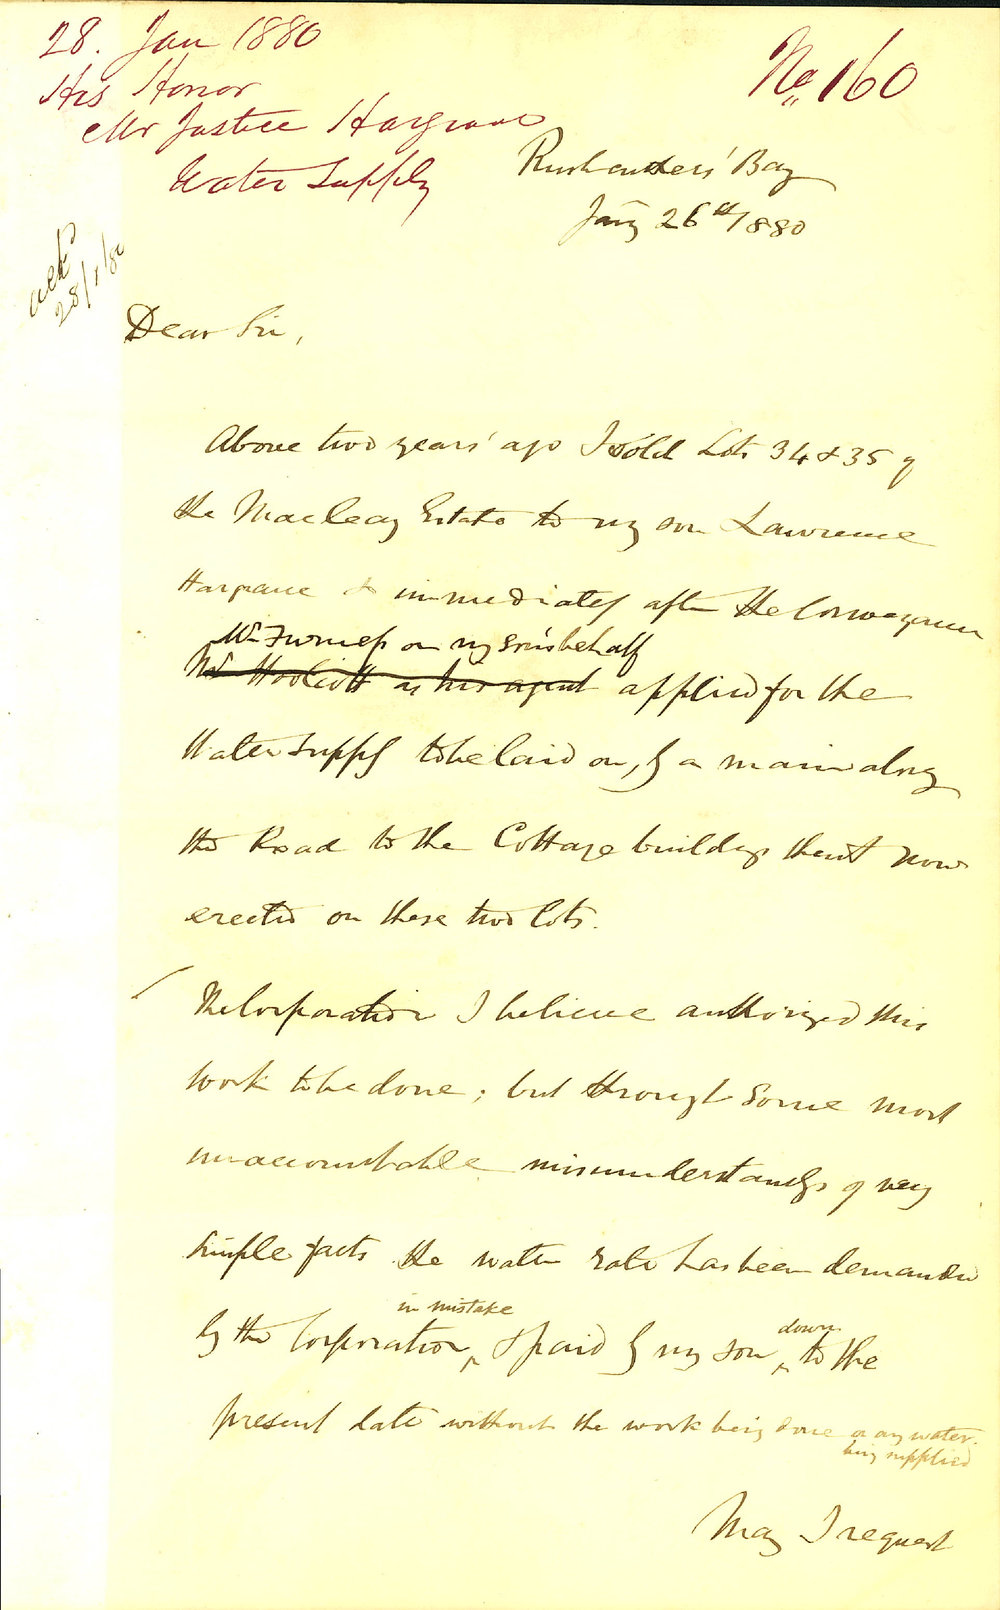 28. Jan 1880
His Honor
Mr Justice Hargrave
Water Supply
No 160
Rushcutters' Bay
Jany 26th/1880
ack
28/1/80
Dear Sir,
Above two years' ago I sold Lots 34 & 35 of
the Macleay Estate to my son Lawrence
Hargrave & immediately after the Conveyance
Mr Furness on my son's behalf
Mr Woolcott as his agent applied for the
Water Supply to be laid on, by a main along
the Road to the Cottage buildings then & now
erected on these two lots.
The Corporation I believe authorized this
work to be done; but through some most
unaccountable misunderstandings of very
simple facts the water rate has been demanded
in mistake
down
by the Corporation, & paid by my son, to the
present date without the work being done or any water
being supplied
May I request